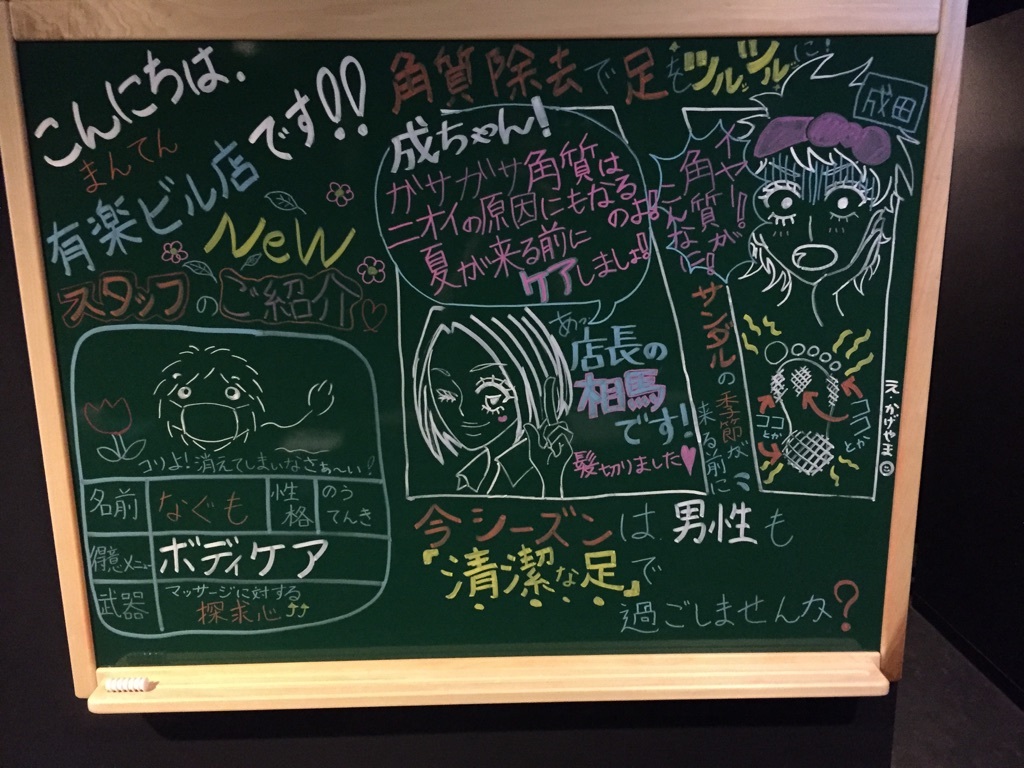 こんにちは.
まんてん
有楽ビル店です!!
NeW
スタッフのご紹介♡
コリよ!消えてしまいなさぁ〜い!!
名前 なぐも 性格 のうてんき
得意メニュー ボディケア
武器 マッサージに対する
探求心⤴⤴
角質除去で足もツルッツルに!
成ちゃん!
ガサガサ角質は
ニオイの原因にもなるのよ!
夏が来る前に
ケアしましょ!
あっ
店長の
相馬
です!
髪切りました♥
成田
イヤ!!
角質が
こんなに!
サンダルの季節が
来る前に
ココとか
ココとか
え・かげやま
今シーズンは男性も
『清潔な足』で
過ごしませんカ?